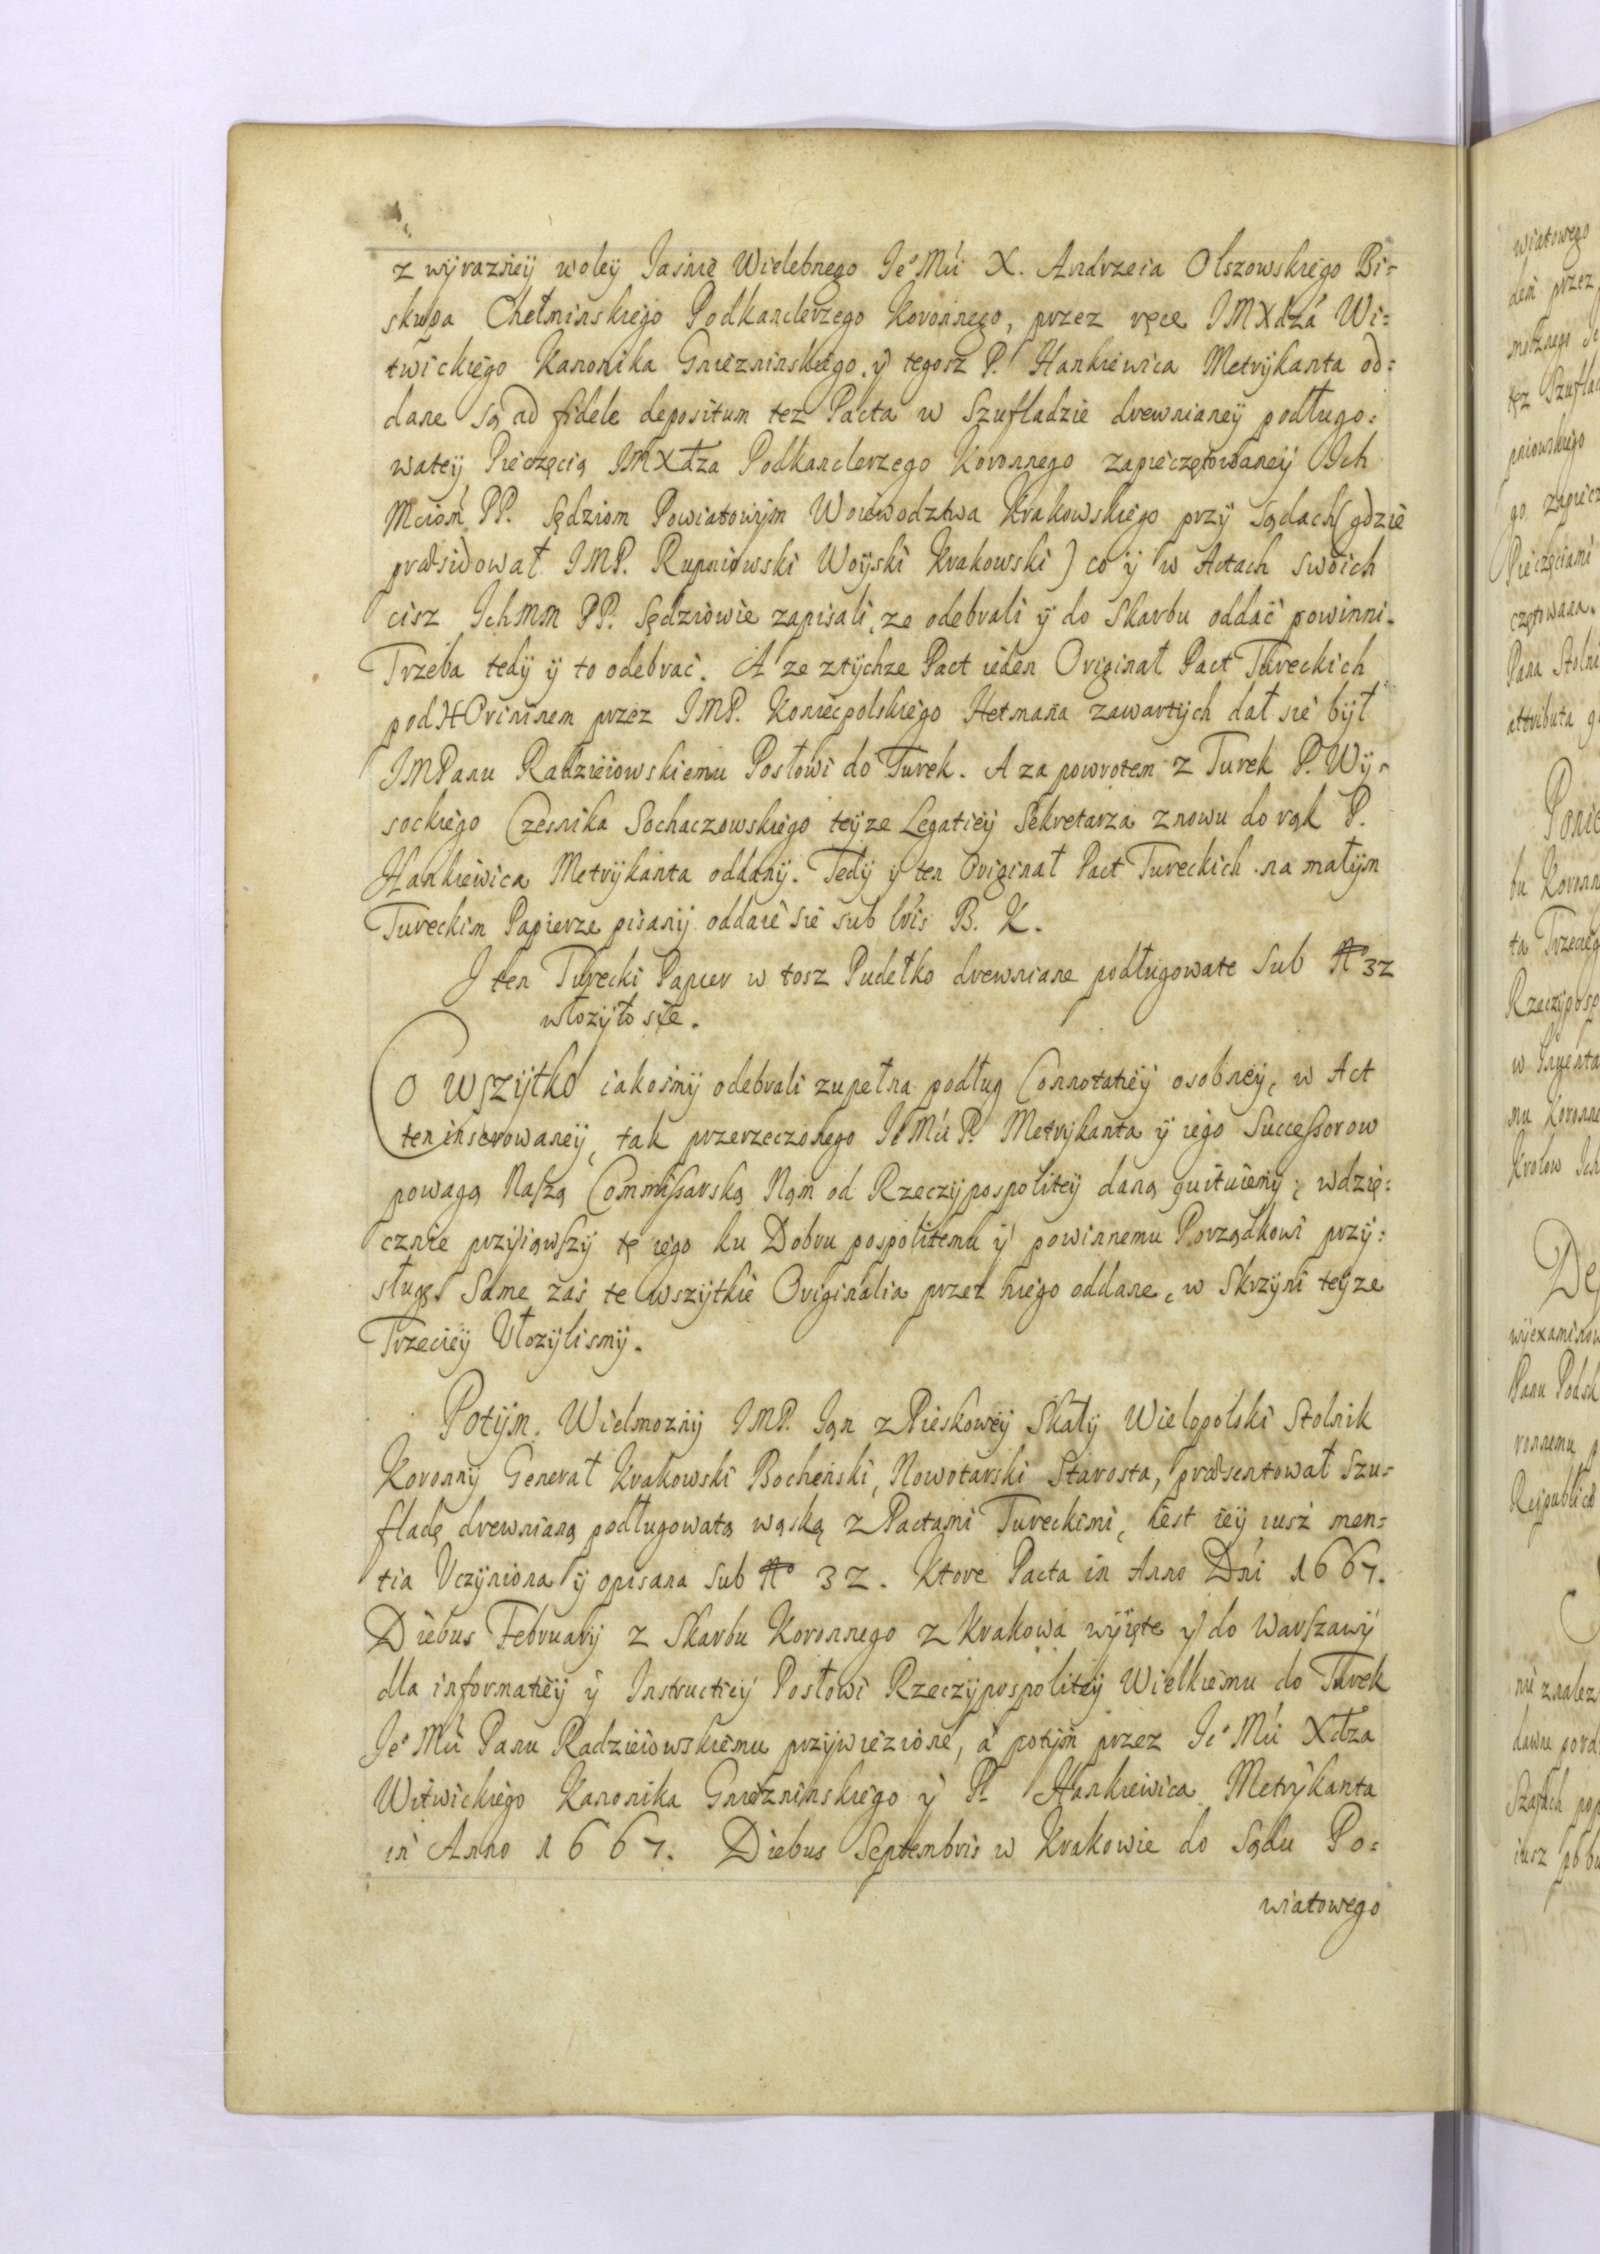 z wyrazney woley Jasnie Wielebnego Ie° Mći X. Andrzeia Olszowskiego Bi=
skupa Chełminskiego Podkanclerzego Koronnego, przez ręce IMXdza Wi=
twickiego Kanonika Gniezninskiego, ÿ tegosz P. Hankiewica Metrÿkanta od=
dane są ad fidele depositum tez Pacta w Szufladzie drewnianeÿ podługo=
wateÿ Pieczęcią IMXdza Podkanclerzego Koronnego zapieczętowaneÿ Ich
Mciom PP. Sędziom Powiatowÿm Woiewodztwa Krakowskiego przÿ Sądach (gdzie
præsidował IMP. Rupniowski Woÿski Krakowski) co ÿ w Actach swoich
cisz IchMM PP. Sędziowie zapisali, ze odebrali ÿ do Skarbu oddać powinni.
Trzeba tedÿ ÿ to odebrać. A ze ztÿchze Pact ieden Originał Pact Tureckich
pod Hocimem przez IMP. Koniecpolskiego Hetmana zawartÿch dał się bÿł
IMPanu Radzieiowskiemu Posłowi do Turek. A za powrotem z Turek P. Wÿ=
sockiego Czesnika Sochaczowskiego teÿze Legatieÿ Sekretarza znowu do rąk P.
Hankiewica Metrÿkanta oddanÿ. Tedÿ ÿ ten Originał Pact Tureckich na małÿm
Tureckim Papierze pisanÿ oddaie sie sub lris B. K.
I ten Turecki Papier w tosz Pudełko drewniane podługowate Sub No 32
włozÿło się.
Co wszÿtko iakosmÿ odebrali zupełna podług Connotatieÿ osobneÿ, w Act
ten inserowaneÿ, tak przerzeczonego Ie Mći P. Metrÿkanta ÿ iego Successorow
powagą Naszą Commissarską Nąm od Rzeczÿpospoliteÿ daną quituiemÿ, wdzię=
cznie przÿiąwszÿ tę iego ku Dobru pospolitemu ÿ powinnemu Porządkowi przÿ=
sługę. Same zaś te wszÿtkie Originalia przez niego oddane, w Skrzÿni teÿze
Trzecieÿ Włozÿlismÿ.
Potÿm. Wielmoznÿ IMP. Ian z Pieskoweÿ Skałÿ Wielopolski Stolnik
Koronnÿ Generał Krakowski Bochenski, Nowotarski Starosta, præsentował Szu=
fladę drewnianą podługowatą wąską z Pactami Tureckimi, iest ieÿ iusz men=
tia Uczÿniona ÿ opisana Sub No 32. Ktore Pacta in Anno Dńi 1667.
Diebus Februarij z Skarbu Koronnego z Krakowa wÿięte ÿ do Warszawÿ
dla informatieÿ ÿ Instructieÿ Posłowi Rzeczÿpospoliteÿ Wielkiemu do Turek
Ie° Mći Panu Radzieiowskiemu przÿwiezione, a potÿm przez Ie° Mći Xdza
Witwickiego Kanonika Gniezninskiego ÿ P. Hankiewica Metrÿkanta
in Anno 1667. Diebus Septembris w Krakowie do Sądu Po=
wiatowego